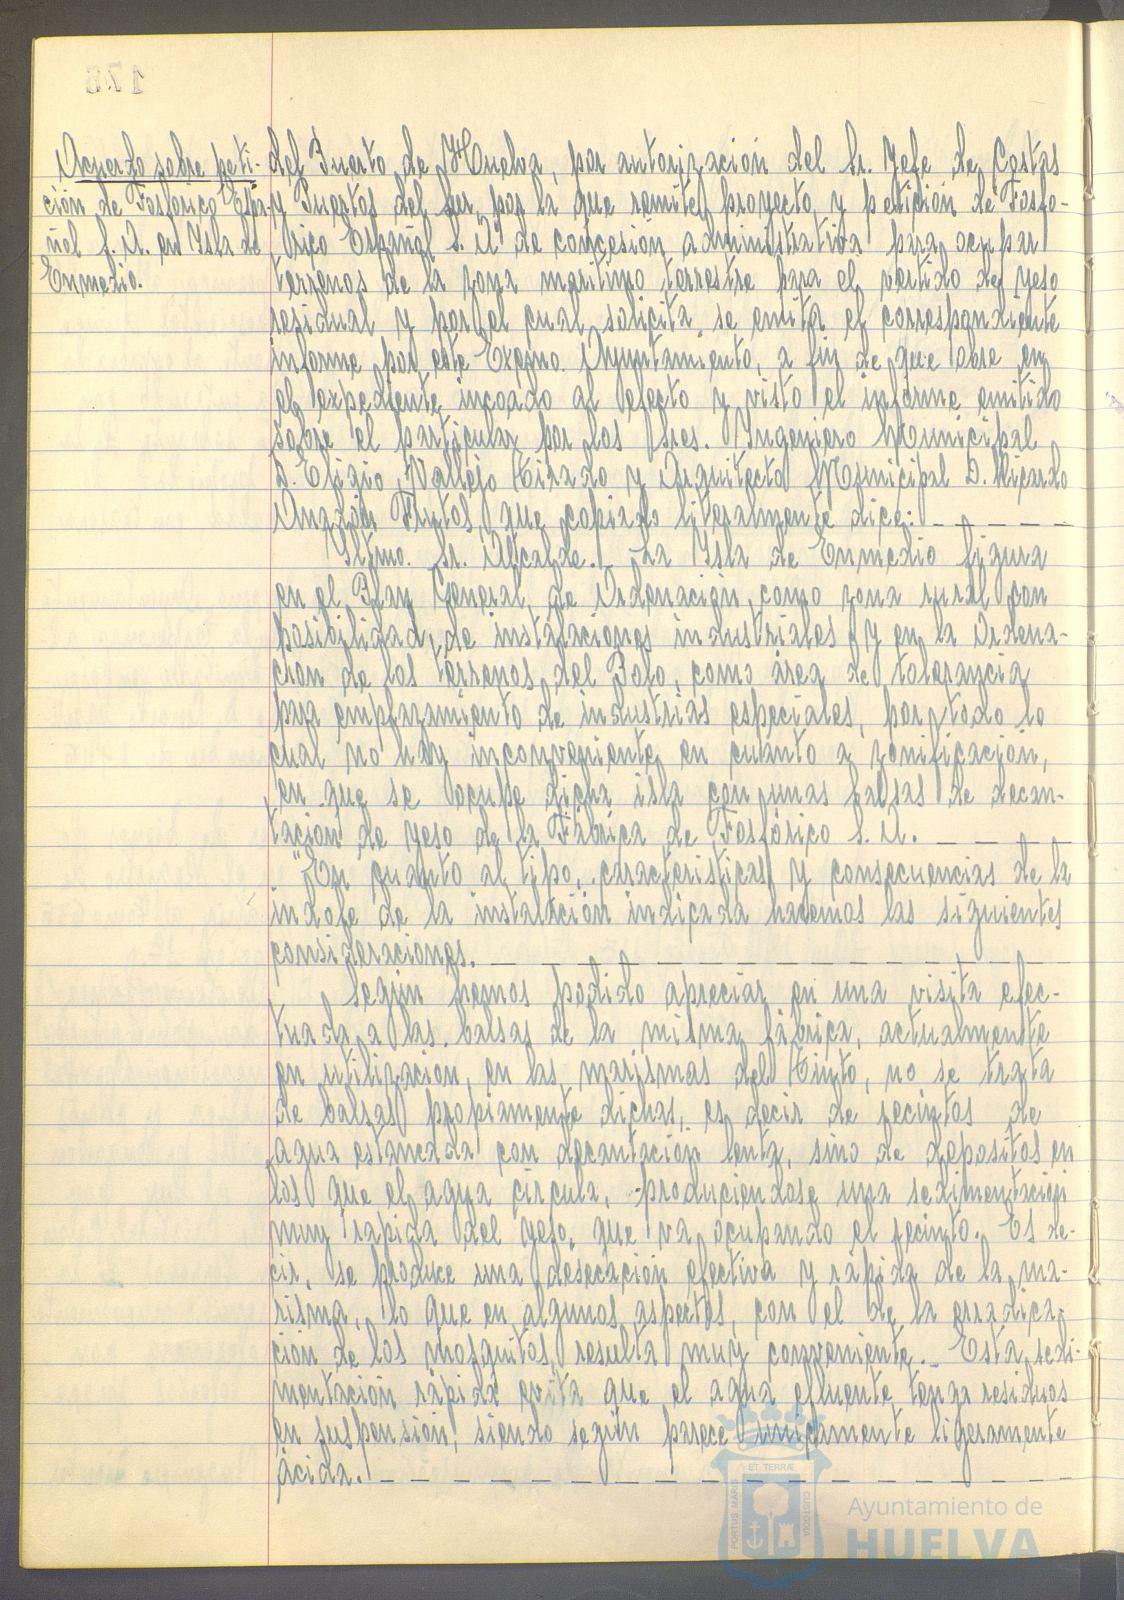 Acuerdo sobre peti-
ción de Fosfórico Espa-
ñol S.A. en Isla de
Enmedio.
del Puerto de Huelva, por autorización del Sr. Jefe de Costas
y Puertos del Sur, por la que remite proyecto y petición de Fosfó-
rico Español S.A. de concesión administrativa para ocupar
terrenos de la zona marítimo terrestre para el vertido de yeso
residual y por el cual solicita se emita el correspondiente
informe por este Excmo. Ayuntamiento, a fin de que obre en
el expediente incoado al efecto y visto el informe emitido
sobre el particular por los Sres. Ingeniero Municipal
D. Eligio Vallejo Tirado y Arquitecto Municipal D. Ricardo
Anadón Frutos, que copiado literalmente dice:
Iltmo. Sr. Alcalde. La Isla de Enmedio figura
en el Plan General de Ordenación, como zona rural con
posibilidad de instalaciones industriales y en la Ordena-
ción de los terrenos del Polo, como área de tolerancia
para emplazamiento de industrias especiales, por todo lo
cual no hay inconveniente en cuanto a zonificación,
en que se ocupe dicha isla con unas balsas de decan-
tación de yeso de la Fábrica de Fosfórico S.A.
"En cuanto al tipo, características y consecuencias de la
índole de la instalación indicada hacemos las siguientes
consideraciones.
Según hemos podido apreciar en una visita efec-
tuada a las balsas de la misma fábrica, actualmente
en utilización, en las marismas del Tinto, no se trata
de balsas propiamente dichas, es decir de recintos de
agua estancada con decantación lenta, sino de depósitos en
los que el agua circula, produciendose una sedimentación
muy rápida del yeso, que va ocupando el recinto. Es de-
cir, se produce una desecación efectiva y rápida de la ma-
risma, lo que en algunos aspectos, con el de la erradica-
ción de los mosquitos resulta muy conveniente. Esta sedi-
mentación rápida evita que el agua efluente tenga residuos
en suspensión, siendo según parece unicamente ligeramente
ácida.
PORTUS MARIS ET TERRÆ CUSTODIA
Ayuntamiento de
HUELVA